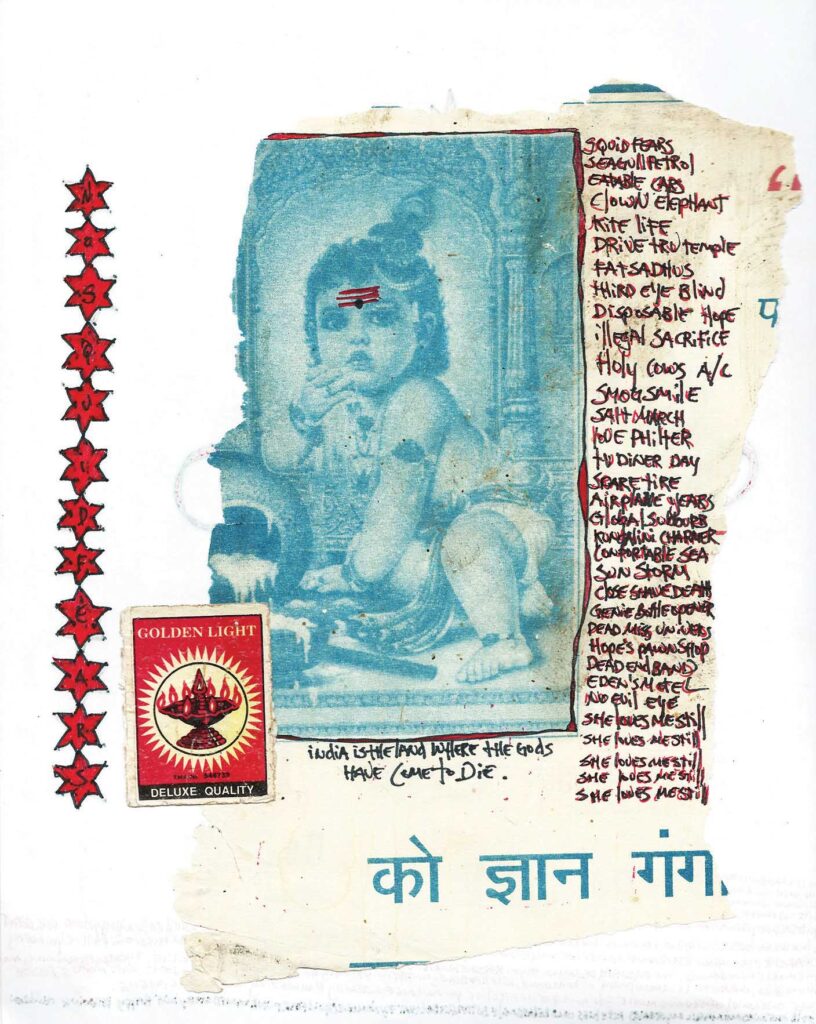 NOSQUIDFEARS
SQUID FEARS
SEAGULL PETROL
EATABLE CARS
CLOWN ELEPHANT
KITE LIFE
DRIVE TRU TEMPLE
FAT SADHUS
THIRD EYE BLIND
DISPOSABLE HOPE
ILLEGAL SACRIFICE
HOLY COWS A/C
SMOG SMILE
SALT MARCH
LOVE PHILTER
TV DINER DAY
SPARE TIRE
AIRPLANE YEARS
GLOBAL SUBURB
KUNDALINI CHARMER
CONFORTABLE SEA
SUN STORM
CLOSE SHAVE DEATH
GENIE BOTTLE OPENER
DEAD MISS UNIVERS
HOPE'S PAWN SHOP
DEAD END BAND
EDEN'S MOTEL
NO EVIL EYE
SHE LOVES ME STILL
SHE LOVES ME STILL
SHE LOVES ME STILL
SHE LOVES ME STILL
SHE LOVES ME STILL
“
प
GOLDEN LIGHT
DELUXE QUALITY
INDIA IS THE LAND WHERE THE GODS
HAVE COME TO DIE.
को ज्ञान गंग